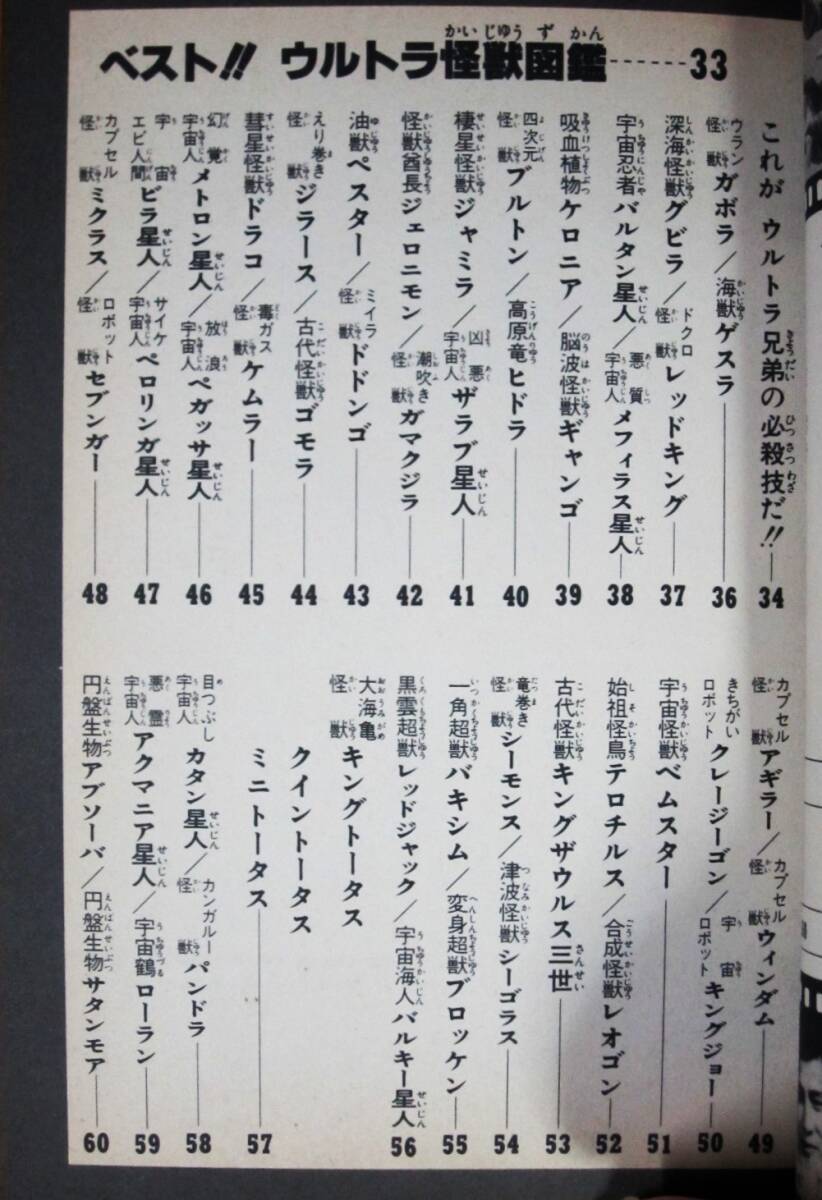 ベスト!! ウルトラ怪獣図鑑……33
これが ウルトラ兄弟の必殺技だ!!――34
ウラン怪獣ガボラ/海獣ゲスラ――36
深海怪獣グビラ/ドクロ怪獣レッドキング――37
宇宙忍者バルタン星人/悪質宇宙人メフィラス星人――38
吸血植物ケロニア/脳波怪獣ギャンゴ――39
四次元怪獣ブルトン/高原竜ヒドラ――40
棲星怪獣ジャミラ/凶悪宇宙人ザラブ星人――41
怪獣酋長ジェロニモン/潮吹き怪獣ガマクジラ――42
油獣ペスター/ミイラ怪獣ドドンゴ――43
えり巻き怪獣ジラース/古代怪獣ゴモラ――44
彗星怪獣ドラコ/毒ガス怪獣ケムラー――45
幻覚宇宙人メトロン星人/放浪宇宙人ペガッサ星人――46
宇宙エビ人間ビラ星人/サイケ宇宙人ペロリンガ星人――47
カプセル怪獣ミクラス/ロボット怪獣セブンガー――48
カプセル怪獣アギラー/カプセル怪獣ウィンダム――49
きちがいロボットクレージーゴン/宇宙ロボットキングジョー――50
宇宙怪獣ベムスター――51
始祖怪鳥テロチルス/合成怪獣レオゴン――52
古代怪獣キングザウルス三世――53
竜巻き怪獣シーモンス/津波怪獣シーゴラス――54
一角超獣バキシム/変身超獣ブロッケン――55
黒雲超獣レッドジャック/宇宙海人バルキー星人――56
大海亀怪獣キングトータス
クイントータス
ミニトータス――57
目つぶし宇宙人カタン星人/カンガルー怪獣パンドラ――58
悪霊宇宙人アクマニア星人/宇宙鶴ローラン――59
円盤生物アブソーバ/円盤生物サタンモア――60